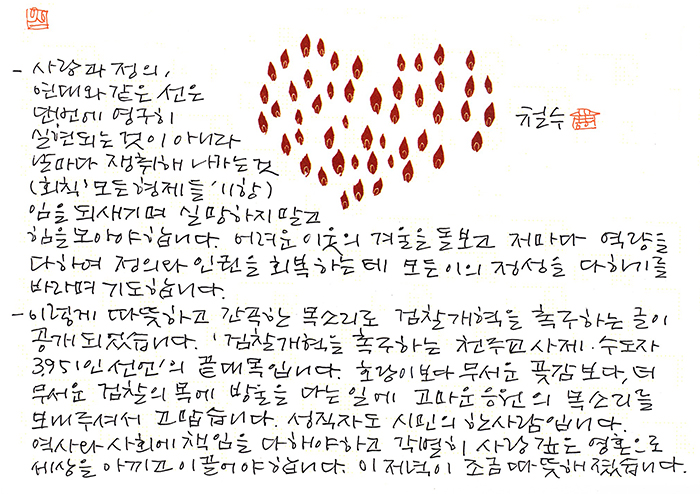 - 사랑과 정의,
연대와 같은 선은
단번에 영구히
실현되는 것이 아니라
날마다 쟁취해 나가는 것
(회칙 '모든 형제들' 11항)
임을 되새기며 실망하지 말고
힘을 모아야 합니다. 어려운 이웃의 겨울을 돌보고 저마다 역량을
다하여 정의와 인권을 회복하는데 모든이의 정성을 다하기를
바라며 기도합니다.
- 이렇게 따뜻하고 간곡한 목소리로 검찰개혁을 촉구하는 글이
공개되었습니다. '검찰개혁을 촉구하는 천주교 사제·수도자
3951인 선언'의 끝대목입니다. 호랑이보다 무서운 곶감보다, 더
무서운 검찰의 목에 방울을 다는 일에 고마운 응원의 목소리를
보내주셔서 고맙습니다. 성직자도 시민의 한사람입니다.
역사와 사회에 책임을 다해야하고 각별히 사랑 깊은 영혼으로
세상을 아끼고 이끌어야 합니다. 이 저녁이 조금 따뜻해졌습니다.
철수